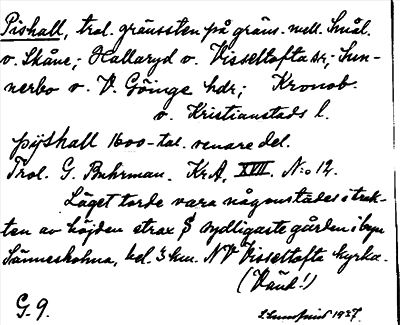 Pishall, tral. gränssten på gräns. mell. Smål.
v. Skåne; Hallaryd v. Visseltofta sn; Sun-
nerbo v. V. Göinge hdr; Kronob.
v. Kristianstads l.
pijshall 1600-tal. senare del.
Trol. G. Buhrman. Kr.A. XVII. N:o 12.
Läget torde vara någonstädes i trak-
ten av höjden strax S sydligaste gården i byn
Sänneskohna, bel. 3 km. NV Visseltofta kyrka.
(Vänd!)
G. 9. 1937.